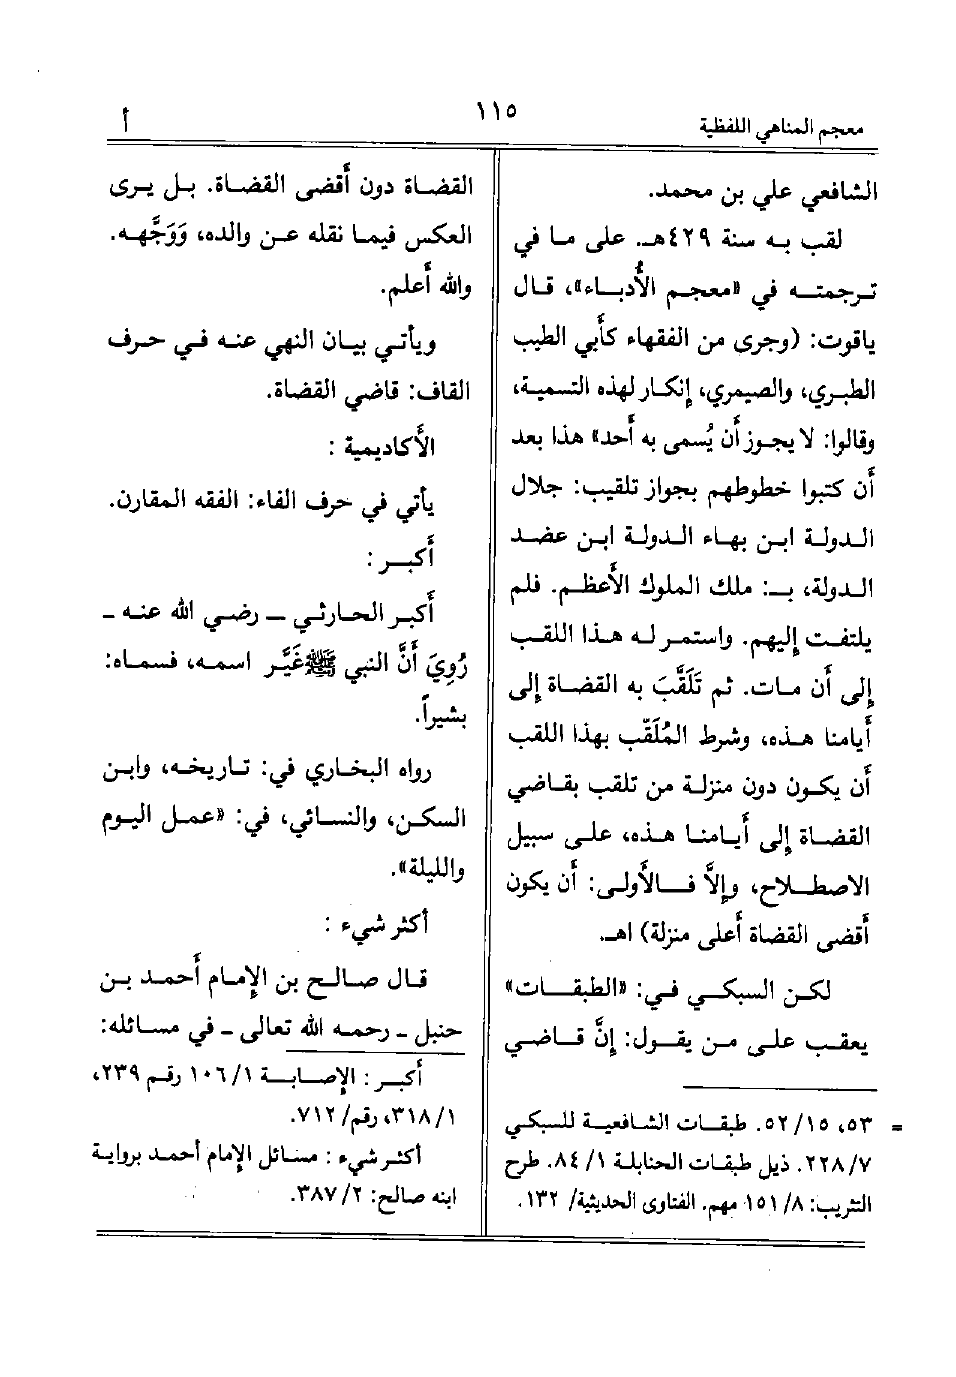 معجم المناهي اللفظية
١١٥
أ
الشافعي علي بن محمد.
لقب به سنة ٤٢٩هـ. على ما في
ترجمته في «معجم الأُدباء»، قال
ياقوت: (وجرى من الفقهاء كأَبي الطيب
الطبري، والصيمري، إنكار لهذه التسمية،
وقالوا: لا يجوز أَن يُسمى به أَحد» هذا بعد
أَن كتبوا خطوطهم بجواز تلقيب: جلال
الدولة ابن بهاء الدولة ابن عضد
الدولة، بـ: ملك الملوك الأَعظم. فلم
يلتفت إليهم. واستمر له هذا اللقب
إلى أَن مات. ثم تَلَقَّبَ به القضاة إلى
أَيامنا هذه، وشرط المُلَقّب بهذا اللقب
أَن يكون دون منزلة من تلقب بقاضي
القضاة إلى أَيامنا هذه، على سبيل
الاصطلاح، وإلاَّ فالأَولى: أَن يكون
أَقضى القضاة أَعلى منزلة) اهـ.
لكن السبكي في: «الطبقات»
يعقب على من يقول: إنَّ قاضي
= ٥٣، ٥٢/١٥. طبقات الشافعية للسبكي
٢٢٨/٧. ذيل طبقات الحنابلة ٨٤/١. طرح
التثريب: ١٥١/٨ مهم. الفتاوى الحديثية/ ١٣٢.
القضاة دون أَقضى القضاة. بل يرى
العكس فيما نقله عن والده، وَوَجَّهه.
والله أَعلم.
ويأتي بيان النهي عنه في حرف
القاف: قاضي القضاة.
الأَكاديمية :
يأتي في حرف الفاء: الفقه المقارن.
أَكبر :
أَكبر الحارثي ــ رضي الله عنه ــ
رُوِيَ أَنَّ النبي ﷺ غَيَّر اسمه، فسماه:
بشيراً.
رواه البخاري في: تاريخه، وابن
السكن، والنسائي، في: «عمل اليوم
والليلة».
أكثر شيء :
قال صالح بن الإمام أَحمد بن
حنبل ــ رحمه الله تعالى ــ في مسائله:
أكبر : الإصابة ١٠٦/١ رقم ٢٣٩،
٣١٨/١، رقم/ ٧١٢.
أكثر شيء : مسائل الإمام أحمد برواية
ابنه صالح: ٣٨٧/٢.